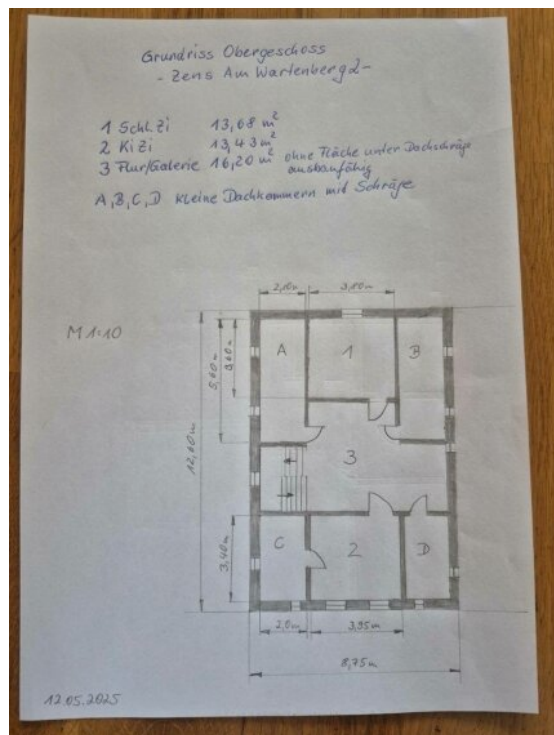 Grundriss Obergeschoss
- Zens Am Wartenberg 2 -
1 Schl.Zi 13,68 m²
2 KiZi 13,43 m²
3 Flur/Galerie 16,20 m² ohne Fläche unter Dachschräge
ausbaufähig
A, B, C, D kleine Dachkammern mit Schräge
M 1:10
2,10m
3,80m
A
1
B
5,60m
3,60m
12,60m
3
3,40m
C
2
D
2,0m
3,95m
8,75m
12.05.2025